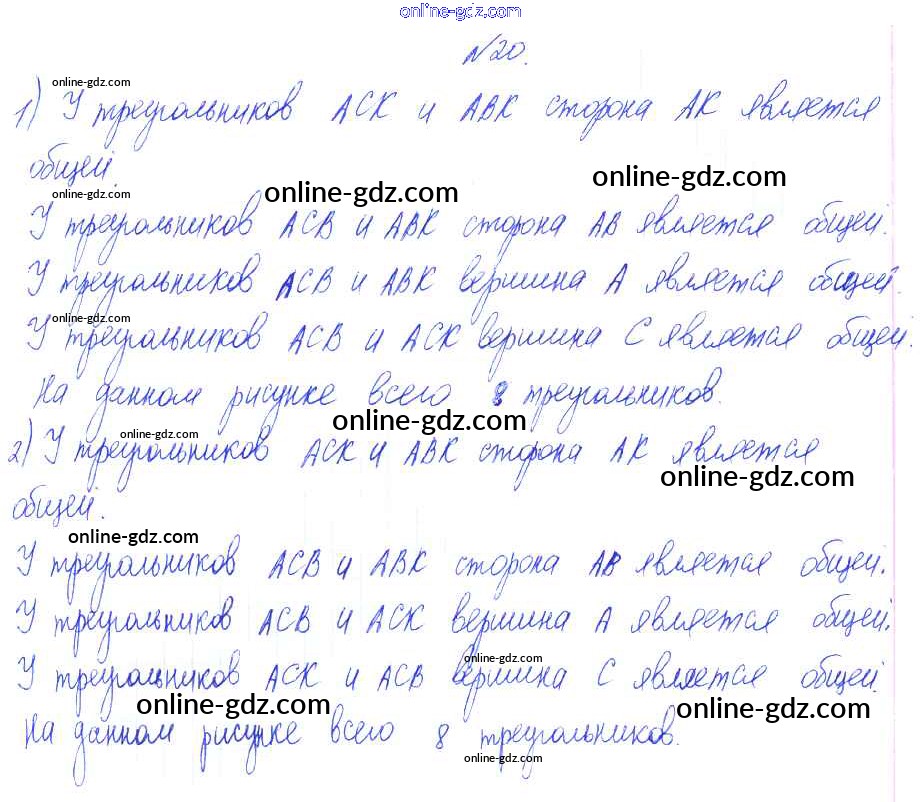 online-gdz.com
№20.
online-gdz.com
1) У треугольников АСК и АВК сторона АК является
общей.
online-gdz.com
online-gdz.com
online-gdz.com
У треугольников АСВ и АВК сторона АВ является общей.
У треугольников АСВ и АВК вершина А является общей.
online-gdz.com
У треугольников АСВ и АСК вершина С является общей.
На данном рисунке всего 8 треугольников.
online-gdz.com
online-gdz.com
2) У треугольников АСК и АВК сторона АК является
online-gdz.com
общей.
online-gdz.com
У треугольников АСВ и АВК сторона АВ является общей.
У треугольников АСВ и АСК вершина А является общей.
online-gdz.com
У треугольников АСК и АСВ вершина С является общей.
online-gdz.com
online-gdz.com
На данном рисунке всего 8 треугольников.
online-gdz.com